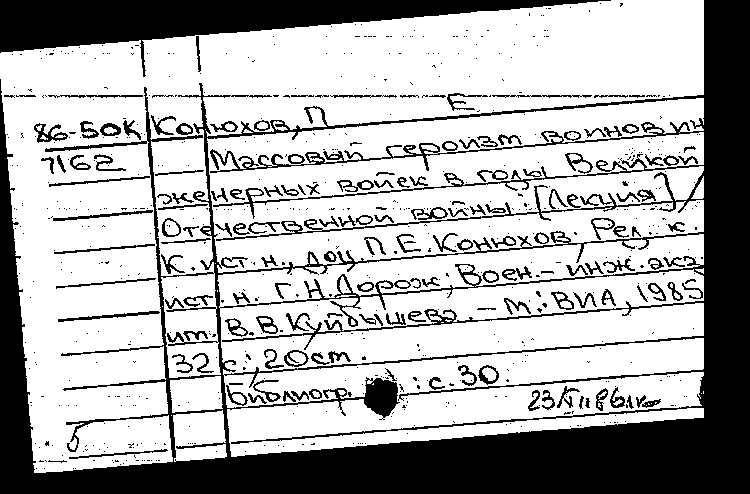 86-50К Конюхов, П Е
7162 Массовый героизм воинов ин
женерных войск в годы Великой
Отечественной войны: [Лекция] /
К. ист. н., доц. П.Е. Конюхов; Ред. к.
ист. н. Г.Н. Дорож; Воен.-инж. ака.
им. В.В. Куйбышева. - М.: ВИА, 1985
32 с.; 20 см.
Библиогр. : с. 30.
5